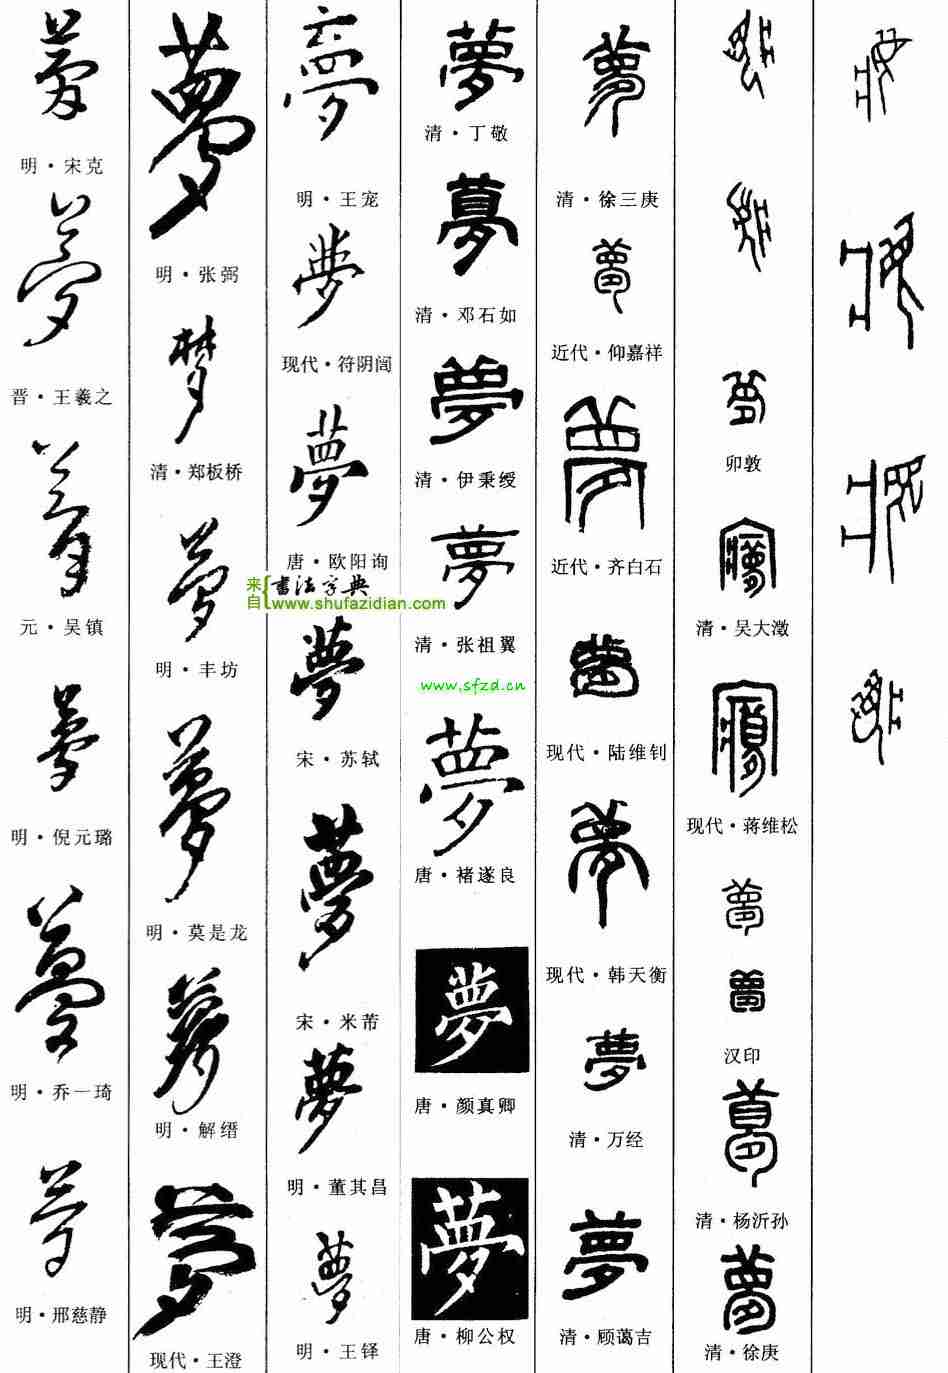 夢
明·宋克
夢
晋·王羲之
夢
元·吴镇
夢
明·倪元璐
夢
明·乔一琦
夢
明·邢慈静
夢
明·张弼
梦
清·郑板桥
夢
明·丰坊
夢
明·莫是龙
夢
明·解缙
夢
现代·王澄
夢
明·王宠
夢
现代·符阴闿
夢
唐·欧阳询
来自 书法字典
www.shufazidian.com
夢
宋·苏轼
夢
宋·米芾
夢
明·董其昌
夢
明·王铎
夢
清·丁敬
夢
清·邓石如
夢
清·伊秉绶
夢
清·张祖翼
www.sfzd.cn
夢
唐·褚遂良
夢
唐·颜真卿
夢
唐·柳公权
夢
清·徐三庚
夢
近代·仰嘉祥
夢
近代·齐白石
夢
现代·陆维钊
夢
现代·韩天衡
夢
清·万经
夢
清·顾蔼吉
夢
卯敦
清·吴大澂
现代·蒋维松
夢
夢
汉印
夢
清·杨沂孙
夢
清·徐庚